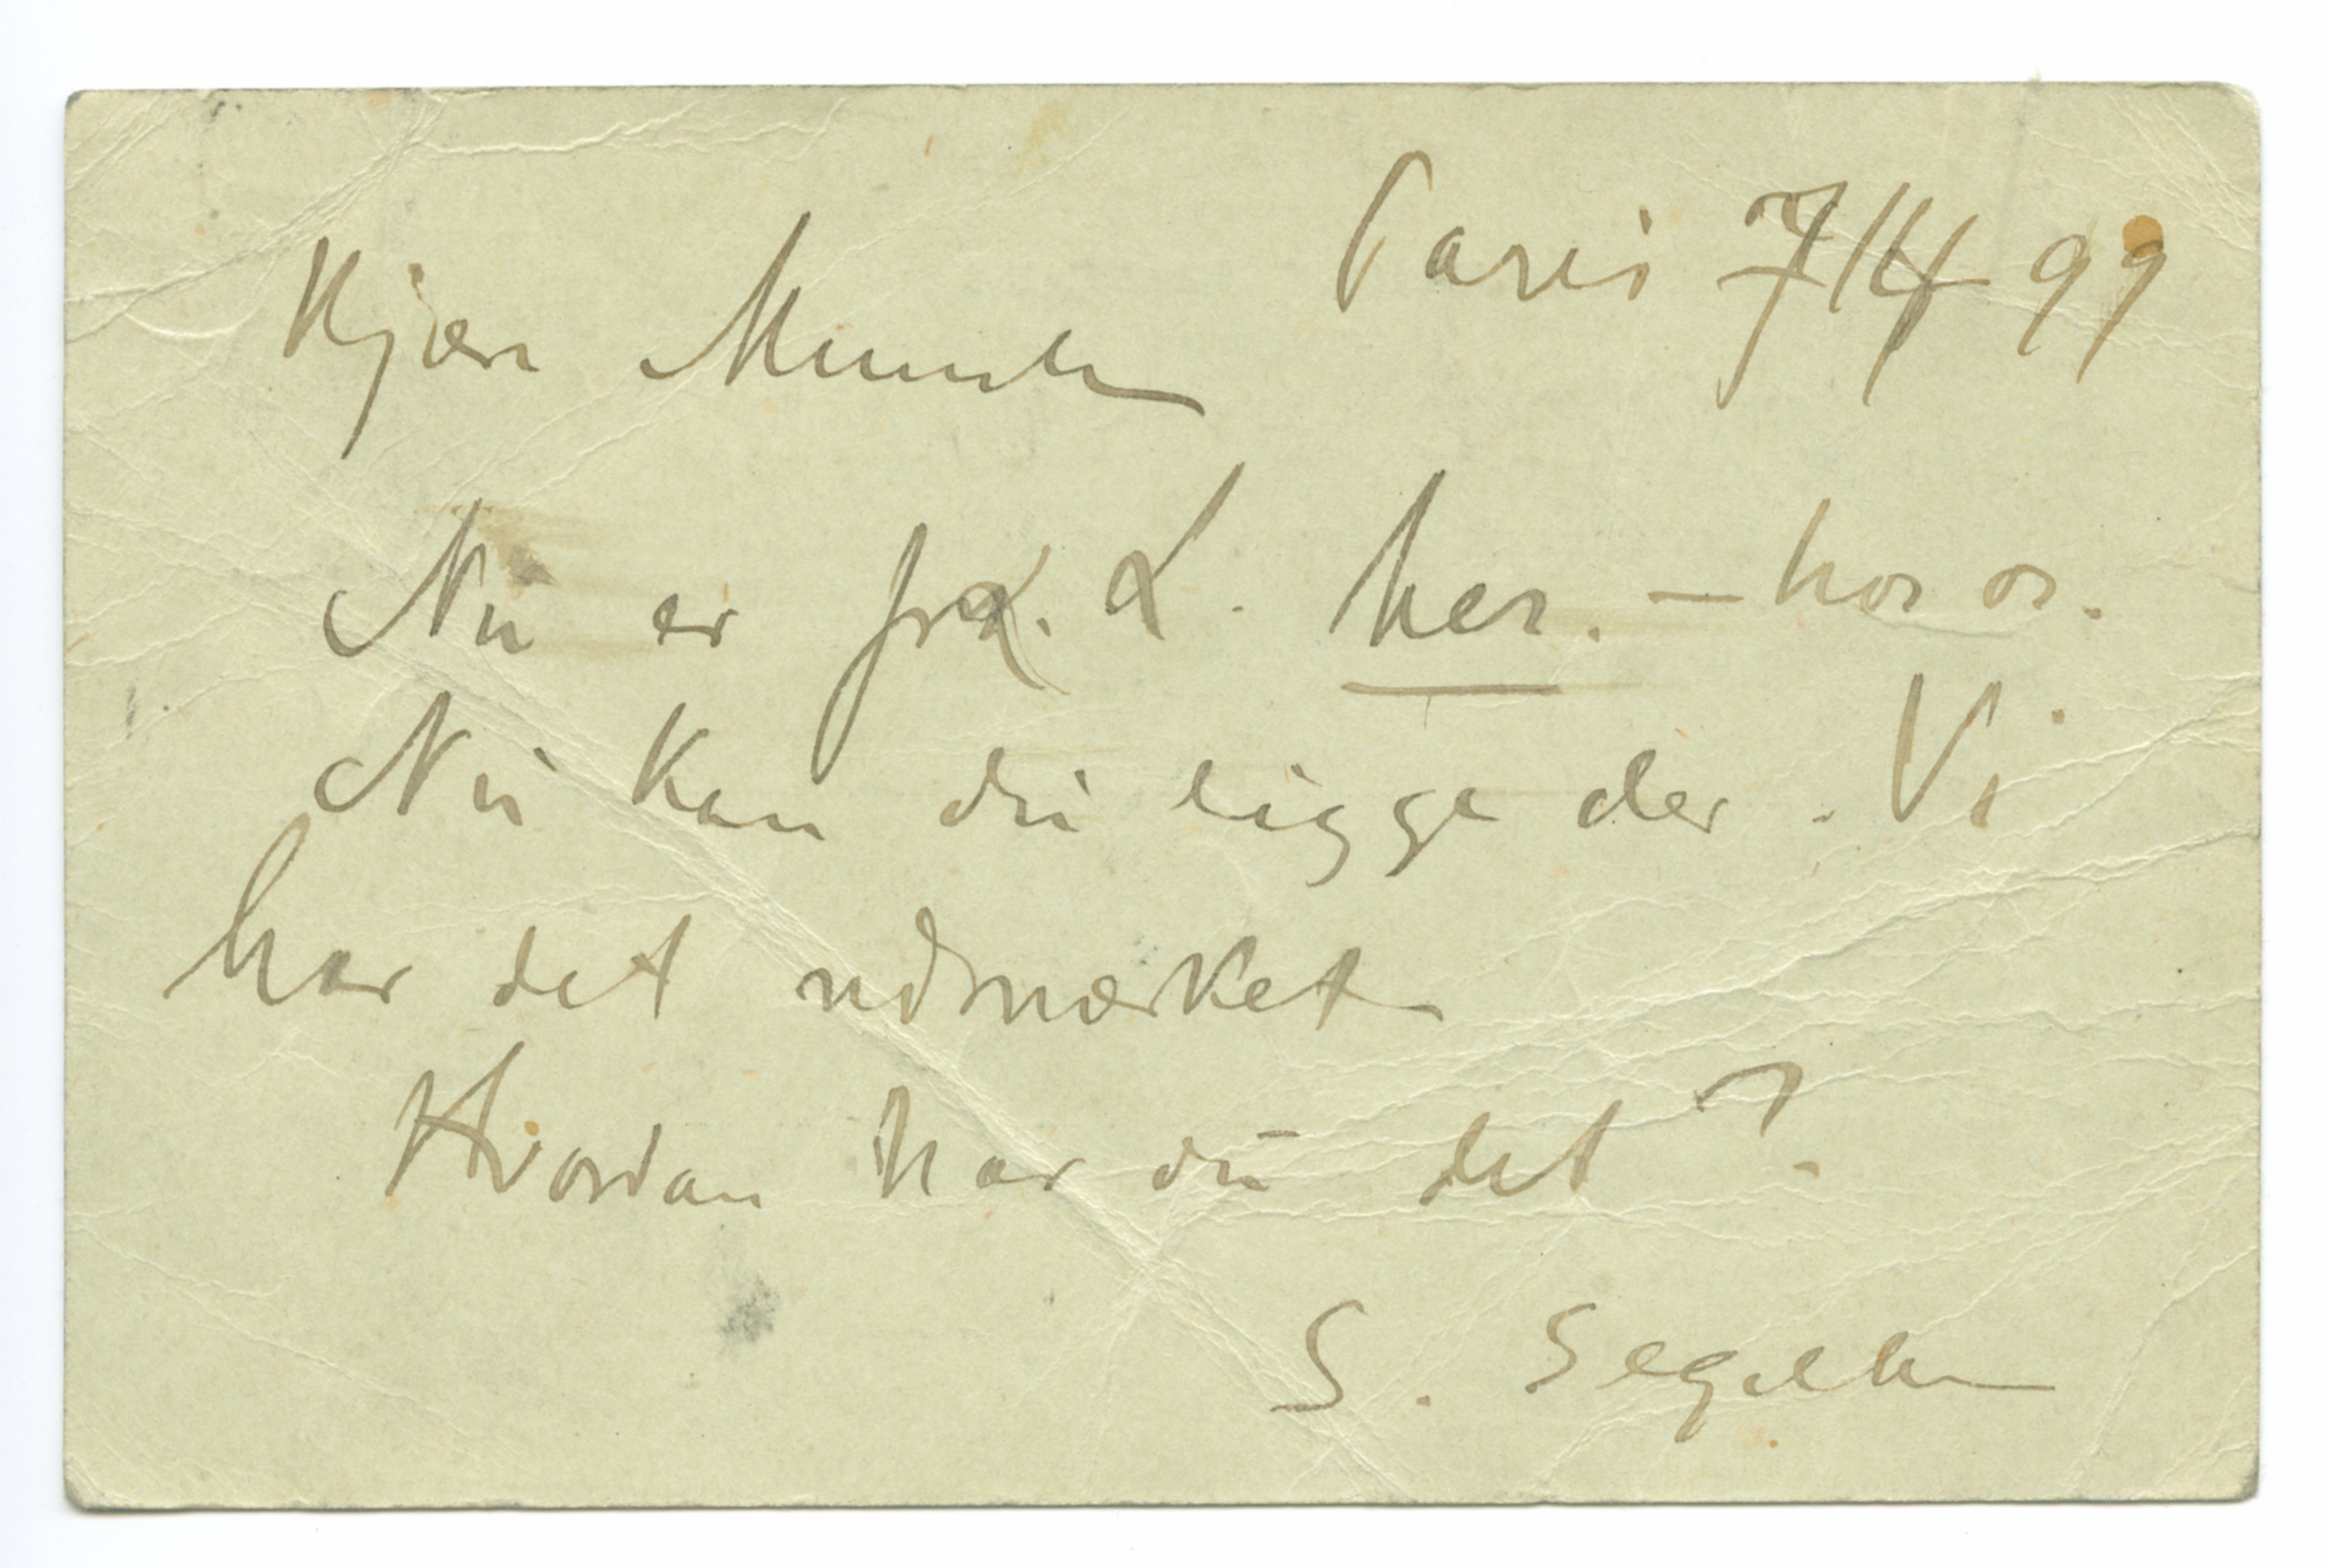 Paris 7/4 99
Kjære Munch
Nu er frk. L. her. – hos os.
Nu kan du ligge der. Vi
har det udmærket
Hvordan har du det?
S. Segelcke